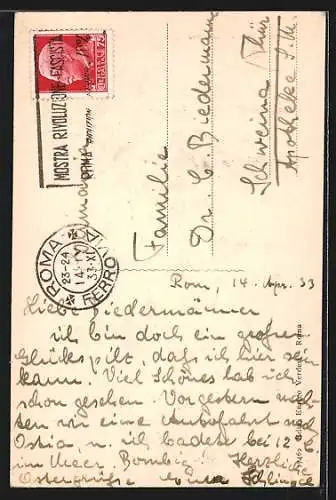 MOSTRA RIVOLUZIONE FASCISTA
ROMA
ROMA FERROVIA
23-24
14·IV
33·XI
Familie
Dr. C. Biedermann
Schweina Thür
Apotheke S.M.
Rom, 14. Apr. 33
Hier Biedermänner
ich bin doch ein großer
Glückspilz, daß ich hier sein
kann. Viel Schönes hab ich
schon gesehen. Vorgestern
wir eine Autofahrt nach
Ostia, u. ich badete bei 12°
im Meer. Bombig. Herzliche
Ostergrüße
Verde Roma